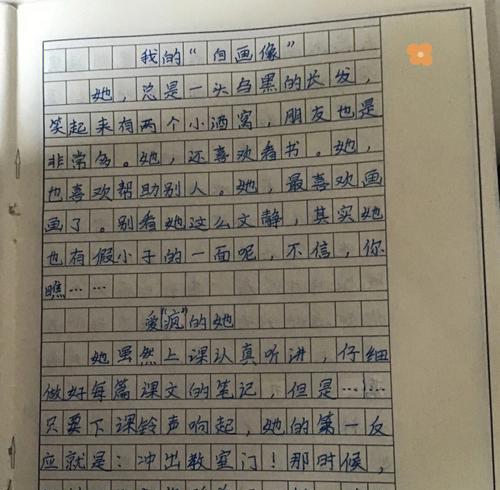 我的“自画像”
她，总是一头乌黑的长发，
笑起来有两个小酒窝，朋友也是
非常多。她，还喜欢看书。她，
也喜欢帮助别人。她，最喜欢画
画了。别看她这么文静，其实她
也有假小子的一面呢，不信，你
瞧……
爱“疯”的她
她虽然上课认真听讲，仔细
做好每篇课文的笔记，但是……
只要下课铃声响起，她的第一反
应就是：冲出教室门！那时候，